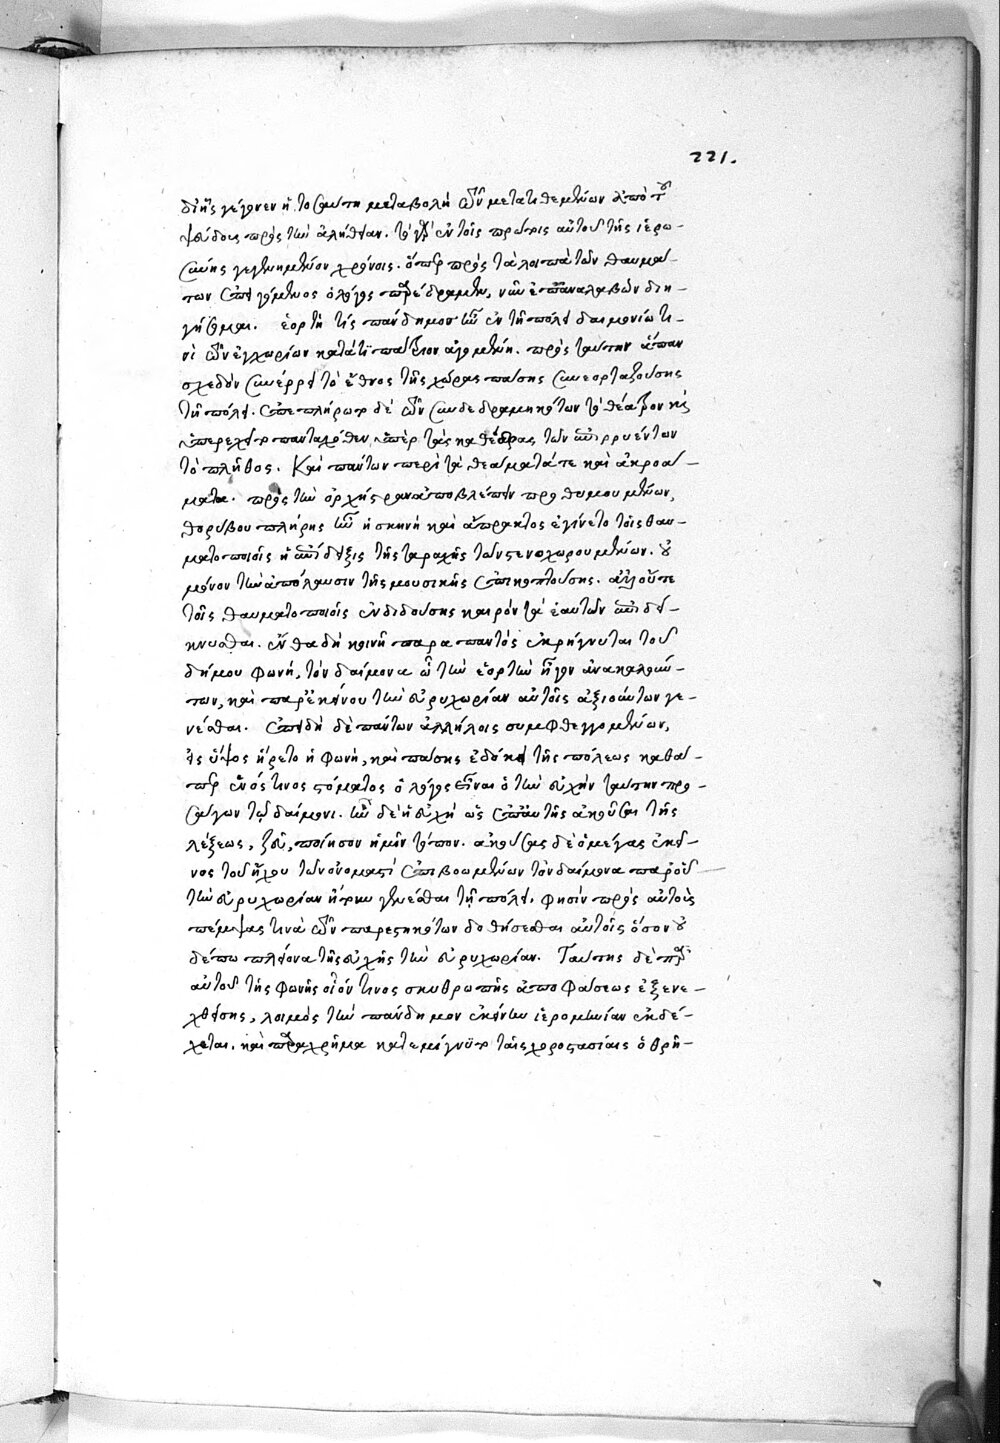 221.
δι' ἧς γέγονεν ἡ τοσαύτη μεταβολὴ τῶν μετατιθεμένων ἀπὸ τοῦ
ψεύδους πρὸς τὴν ἀλήθειαν. τὸ γὰρ ἐν τοῖς πρώτοις αὐτοῦ τῆς ἱερω-
σύνης γεγενημένον χρόνοις. ὅπερ πρὸς τὰ λοιπὰ τῶν θαυμά-
των ἐπειγόμενος ὁ λόγος παρέδραμεν, νῦν ἐπαναλαβὼν διη-
γήσομαι. ἑορτή τις πάνδημος ἦν ἐν τῇ πόλει δαιμονίῳ τι-
νὶ τῶν ἐγχωρίων κατά τι πάτριον ἀγομένη. πρὸς ταύτην ἅπαν
σχεδὸν συνέρρει τὸ ἔθνος τῆς χώρας πάσης συνεορταζούσης
τῇ πόλει. ἐπεπλήρωτο δὲ τῶν συνδεδραμηκότων τὸ θέατρον καὶ
ὑπερεχεῖτο πανταχόθεν ὑπὲρ τὰς καθέδρας τῶν ἐπιρρυέντων
τὸ πλῆθος. Καὶ πάντων περὶ τὰ θεάματά τε καὶ ἀκροά-
ματα. πρὸς τὴν ὀρχήστραν ἀποβλέπειν προθυμουμένων,
θορύβου πλήρης ἦν ἡ σκηνὴ καὶ ἄπρακτος ἐγίνετο τοῖς θαυ-
ματοποιοῖς ἡ ἐπίδειξις τῆς ταραχῆς τῶν στενοχωρουμένων. οὐ
μόνον τὴν ἀπόλαυσιν τῆς μουσικῆς ἐπικοπτούσης. ἀλλ' οὔτε
τοῖς θαυματοποιοῖς ἐνδιδούσης καιρὸν τὰ ἑαυτῶν ἐπιδεί-
κνυσθαι. ἔνθα δὴ κοινὴ παρὰ παντὸς ἐκρήγνυται τοῦ
δήμου φωνή, τὸν δαίμονα ᾧ τὴν ἑορτὴν ἦγον ἀνακαλούν-
των, καὶ παρ' ἐκείνου τὴν εὐρυχωρίαν αὐτοῖς ἀξιούντων γε-
νέσθαι. ἐπειδὴ δὲ πάντων ἀλλήλοις συμφθεγγομένων,
εἰς ὕψος ἤρετο ἡ φωνή, καὶ πάσης ἐδόκει τῆς πόλεως καθά-
περ ἑνός τινος στόματος ὁ λόγος εἶναι ὁ τὴν εὐχὴν ταύτην προ-
σάγων τῷ δαίμονι. ἦν δὲ ἡ εὐχὴ ὡς ἐπ' αὐτῆς ἀκοῦσαι τῆς
λέξεως, Ζεῦ, ποίησον ἡμῖν τόπον. ἀκούσας δὲ ὁ μέγας ἐκεῖ-
νος τοῦ ἤχου τῶν ὀνομαστὶ ἐπιβοωμένων τὸν δαίμονα παρ' οὗ
τὴν εὐρυχωρίαν ᾔτουν γενέσθαι τῇ πόλει, φησὶν πρὸς αὐτοὺς
πέμψας τινὰ τῶν παρεστηκότων δοθήσεσθαι αὐτοῖς ὅσον οὐ
δέπω πλείονα τῆς εὐχῆς τὴν εὐρυχωρίαν. Ταύτης δὲ παρ'
αὐτοῦ τῆς φωνῆς οἷόν τινος σκυθρωπῆς ἀποφάσεως ἐξενε-
χθείσης, λοιμὸς τὴν πάνδημον ἐκείνην ἱερομηνίαν ἐκδέ-
χεται. καὶ παραχρῆμα κατεμίγνυτο ταῖς χοροστασίαις ὁ θρῆ-